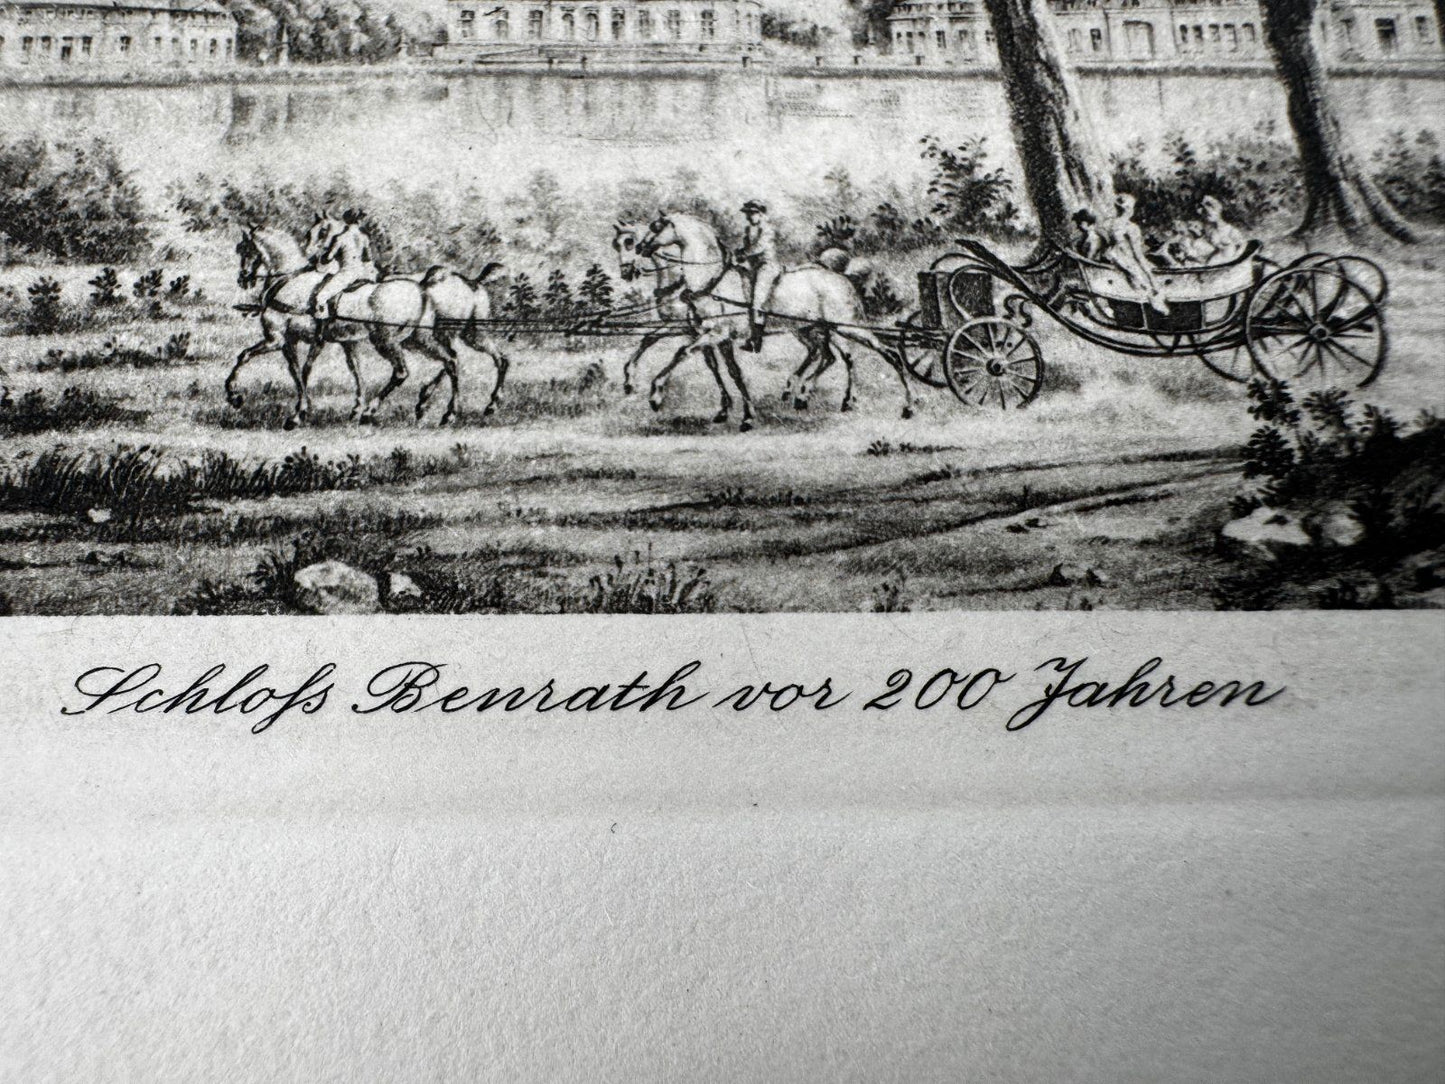 Schloſs Benrath vor 200 Jahren